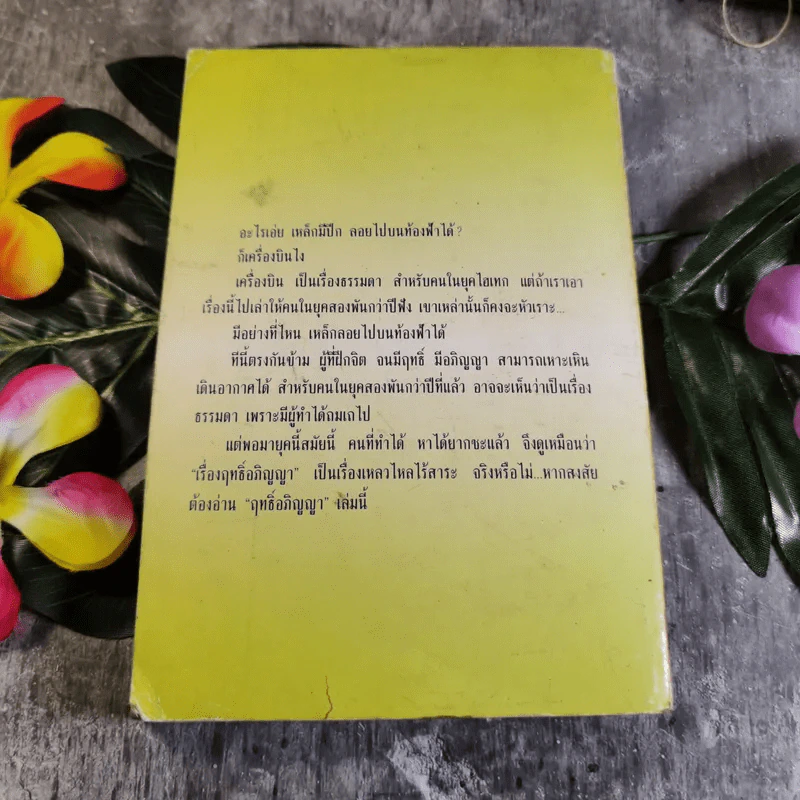 อะไรเอ่ย เหล็กมีปีก ลอยไปบนท้องฟ้าได้?
ก็เครื่องบินไง
เครื่องบิน เป็นเรื่องธรรมดา สำหรับคนในยุคไฮเทก แต่ถ้าเราเอา
เรื่องนี้ไปเล่าให้คนในยุคสองพันกว่าปีฟัง เขาเหล่านั้นก็คงจะหัวเราะ...
มีอย่างที่ไหน เหล็กลอยไปบนท้องฟ้าได้
ทีนี้ตรงกันข้าม ผู้ที่ฝึกจิต จนมีฤทธิ์ มีอภิญญา สามารถเหาะเหิน
เดินอากาศได้ สำหรับคนในยุคสองพันกว่าปีที่แล้ว อาจจะเห็นว่าเป็นเรื่อง
ธรรมดา เพราะมีผู้ทำได้ถมเถไป
แต่พอมายุคนี้สมัยนี้ คนที่ทำได้ หาได้ยากซะแล้ว จึงดูเหมือนว่า
"เรื่องฤทธิ์อภิญญา" เป็นเรื่องเหลวไหลไร้สาระ จริงหรือไม่...หากสงสัย
ต้องอ่าน "ฤทธิ์อภิญญา" เล่มนี้